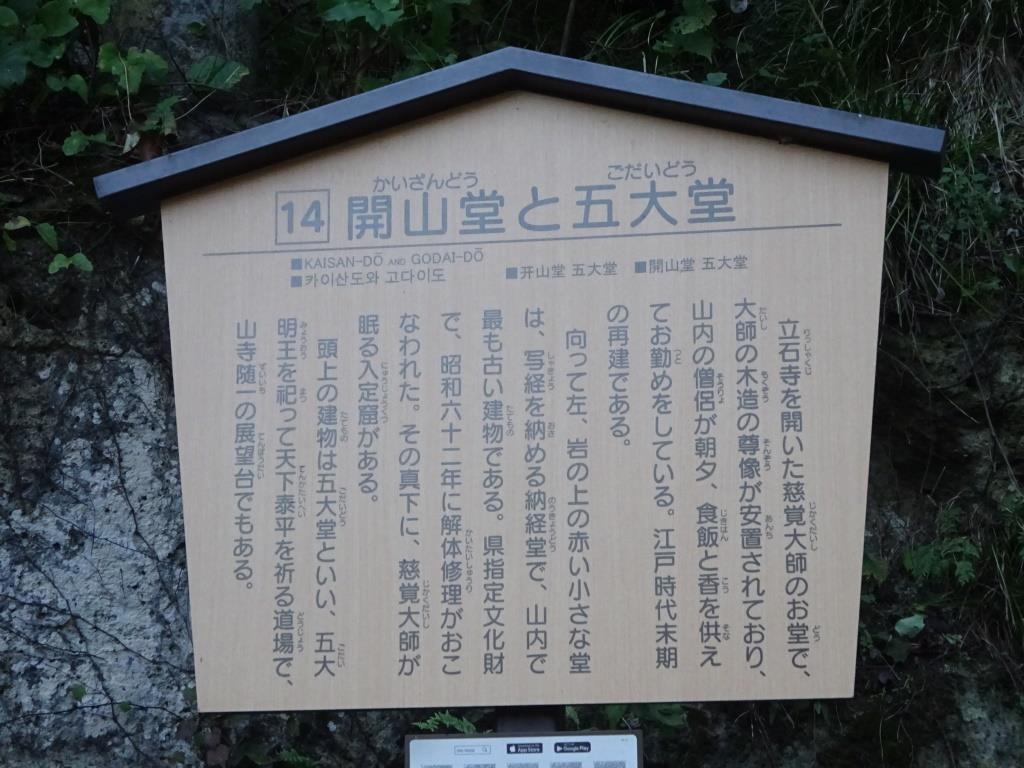 かいざんどう ごだいどう
14 開山堂と五大堂
■KAISAN-DŌ AND GODAI-DŌ
■카이산도와 고다이도
■开山堂 五大堂 ■開山堂 五大堂
立石寺を開いた慈覚大師のお堂で、
大師の木造の尊像が安置されており、
山内の僧侶が朝夕、食飯と香を供え
てお勤めをしている。江戸時代末期
の再建である。
向って左、岩の上の赤い小さな堂
は、写経を納める納経堂で、山内で
最も古い建物である。県指定文化財
で、昭和六十二年に解体修理がおこ
なわれた。その真下に、慈覚大師が
眠る入定窟がある。
頭上の建物は五大堂といい、五大
明王を祀って天下泰平を祈る道場で、
山寺随一の展望台でもある。
App Store
Google Play